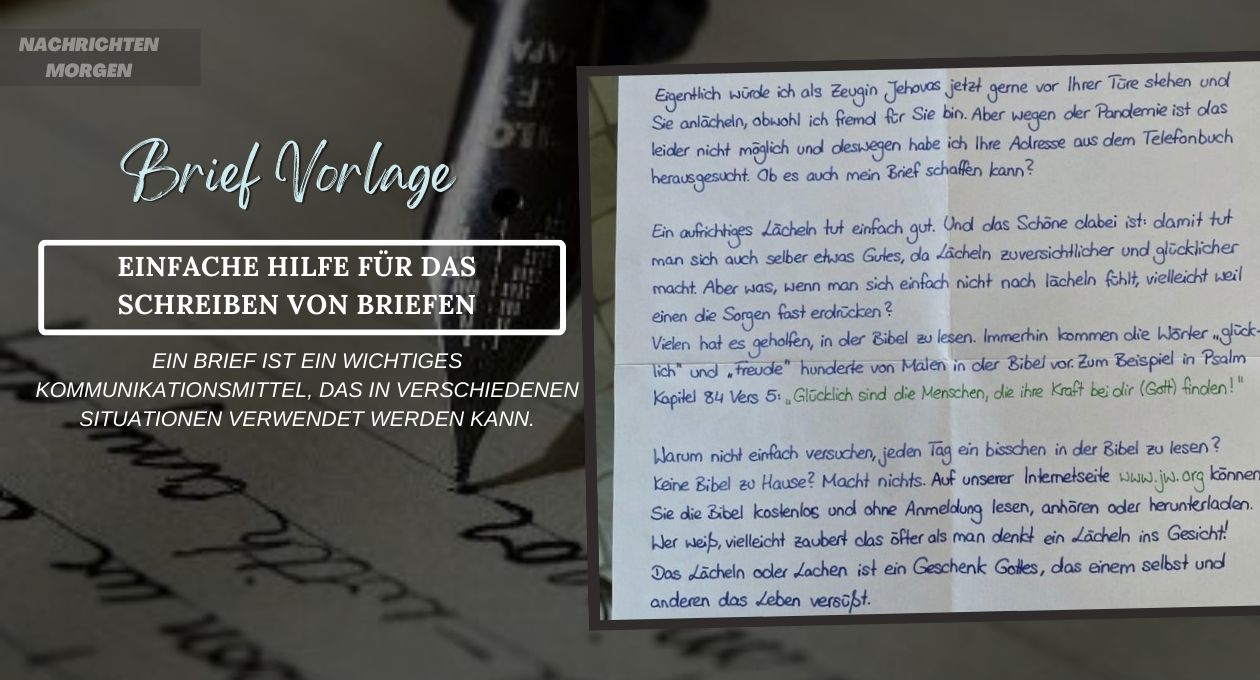 NACHRICHTEN
MORGEN
Brief Vorlage
EINFACHE HILFE FÜR DAS
SCHREIBEN VON BRIEFEN
EIN BRIEF IST EIN WICHTIGES
KOMMUNIKATIONSMITTEL, DAS IN VERSCHIEDENEN
SITUATIONEN VERWENDET WERDEN KANN.
Eigentlich würde ich als Zeugin Jehovas jetzt gerne vor Ihrer Türe stehen und
Sie anlächeln, obwohl ich fremd für Sie bin. Aber wegen der Pandemie ist das
leider nicht möglich und deswegen habe ich Ihre Adresse aus dem Telefonbuch
herausgesucht. Ob es auch mein Brief schaffen kann?
Ein aufrichtiges Lächeln tut einfach gut. Und das Schöne dabei ist: damit tut
man sich auch selber etwas Gutes, da Lächeln zuversichtlicher und glücklicher
macht. Aber was, wenn man sich einfach nicht nach lächeln fühlt, vielleicht weil
einen die Sorgen fast erdrücken?
Vielen hat es geholfen, in der Bibel zu lesen. Immerhin kommen die Wörter „glück-
lich" und „freude" hunderte von Malen in der Bibel vor. Zum Beispiel in Psalm
Kapitel 84 Vers 5: „Glücklich sind die Menschen, die ihre Kraft bei dir (Gott) finden!"
Warum nicht einfach versuchen, jeden Tag ein bisschen in der Bibel zu lesen?
Keine Bibel zu Hause? Macht nichts. Auf unserer Internetseite www.jw.org können
Sie die Bibel kostenlos und ohne Anmeldung lesen, anhören oder herunterladen.
Wer weiß, vielleicht zaubert das öfter als man denkt ein Lächeln ins Gesicht!
Das Lächeln oder Lachen ist ein Geschenk Gottes, das einem selbst und
anderen das Leben versüßt.